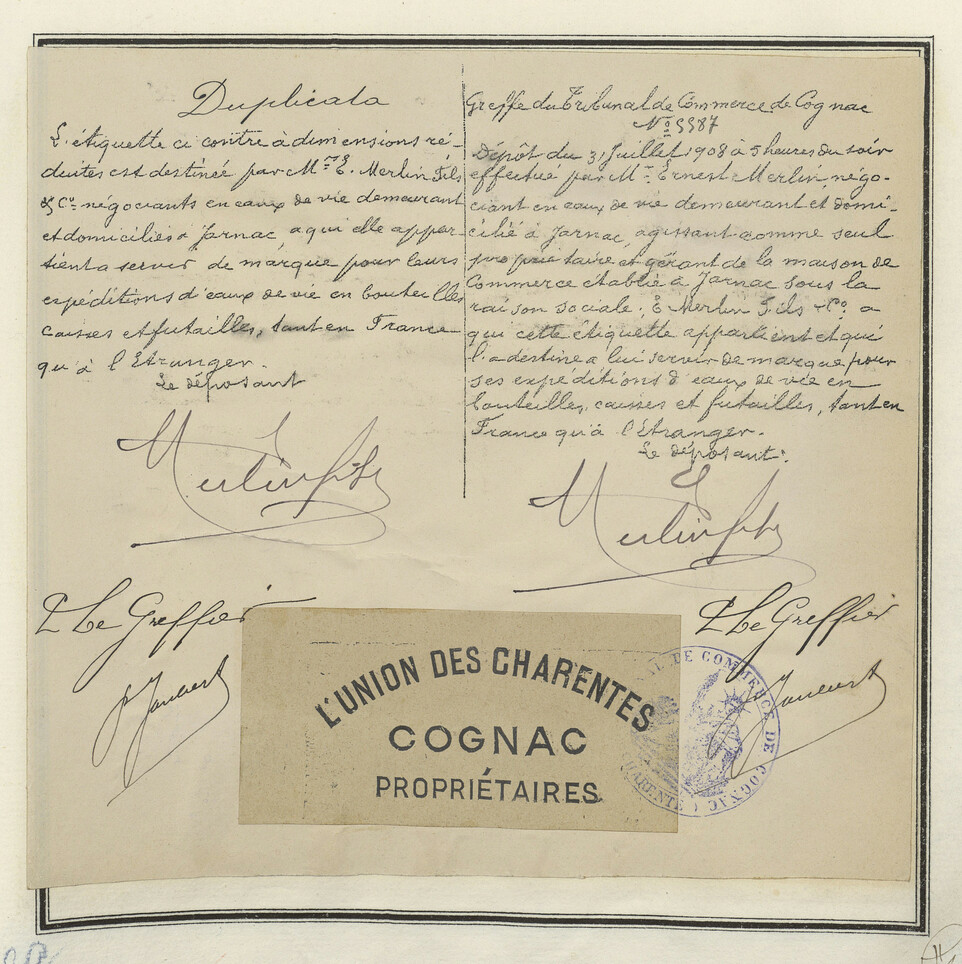 Duplicata
L'étiquette ci contre à dimensions ré-
duites est destinée par Mrs E. Merlin Fils
& Co. négociants en eaux de vie demeurant
et domiciliés à Jarnac, a qui elle appar-
tient a servir de marque pour leurs
expéditions d'eaux de vie en bouteilles
caisses et futailles, tant en France
qu'à l'Etranger.
Le déposant
Merlin fils
P Le Greffier
Greffe du Tribunal de Commerce de Cognac
No 5587
Dépôt du 31 Juillet 1908 a 5 heures du soir
effectué par Mr Ernest Merlin, négo-
ciant en eaux de vie demeurant et domi-
cilié à Jarnac, agissant comme seul
propriétaire et gérant de la maison de
Commerce établie à Jarnac sous la
raison sociale: E Merlin Fils & Co. a
qui cette étiquette appartient et qui
l'a destine a lui servir de marque pour
ses expéditions d'eaux de vie en
bouteilles, caisses et futailles, tant en
France qu'à l'Etranger.
Le déposant.
Merlin fils
P Le Greffier
L'UNION DES CHARENTES
COGNAC
PROPRIÉTAIRES
DE COMMERCE DE COGNAC